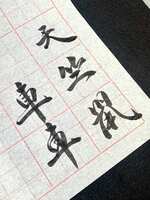 天竺鼠
車車